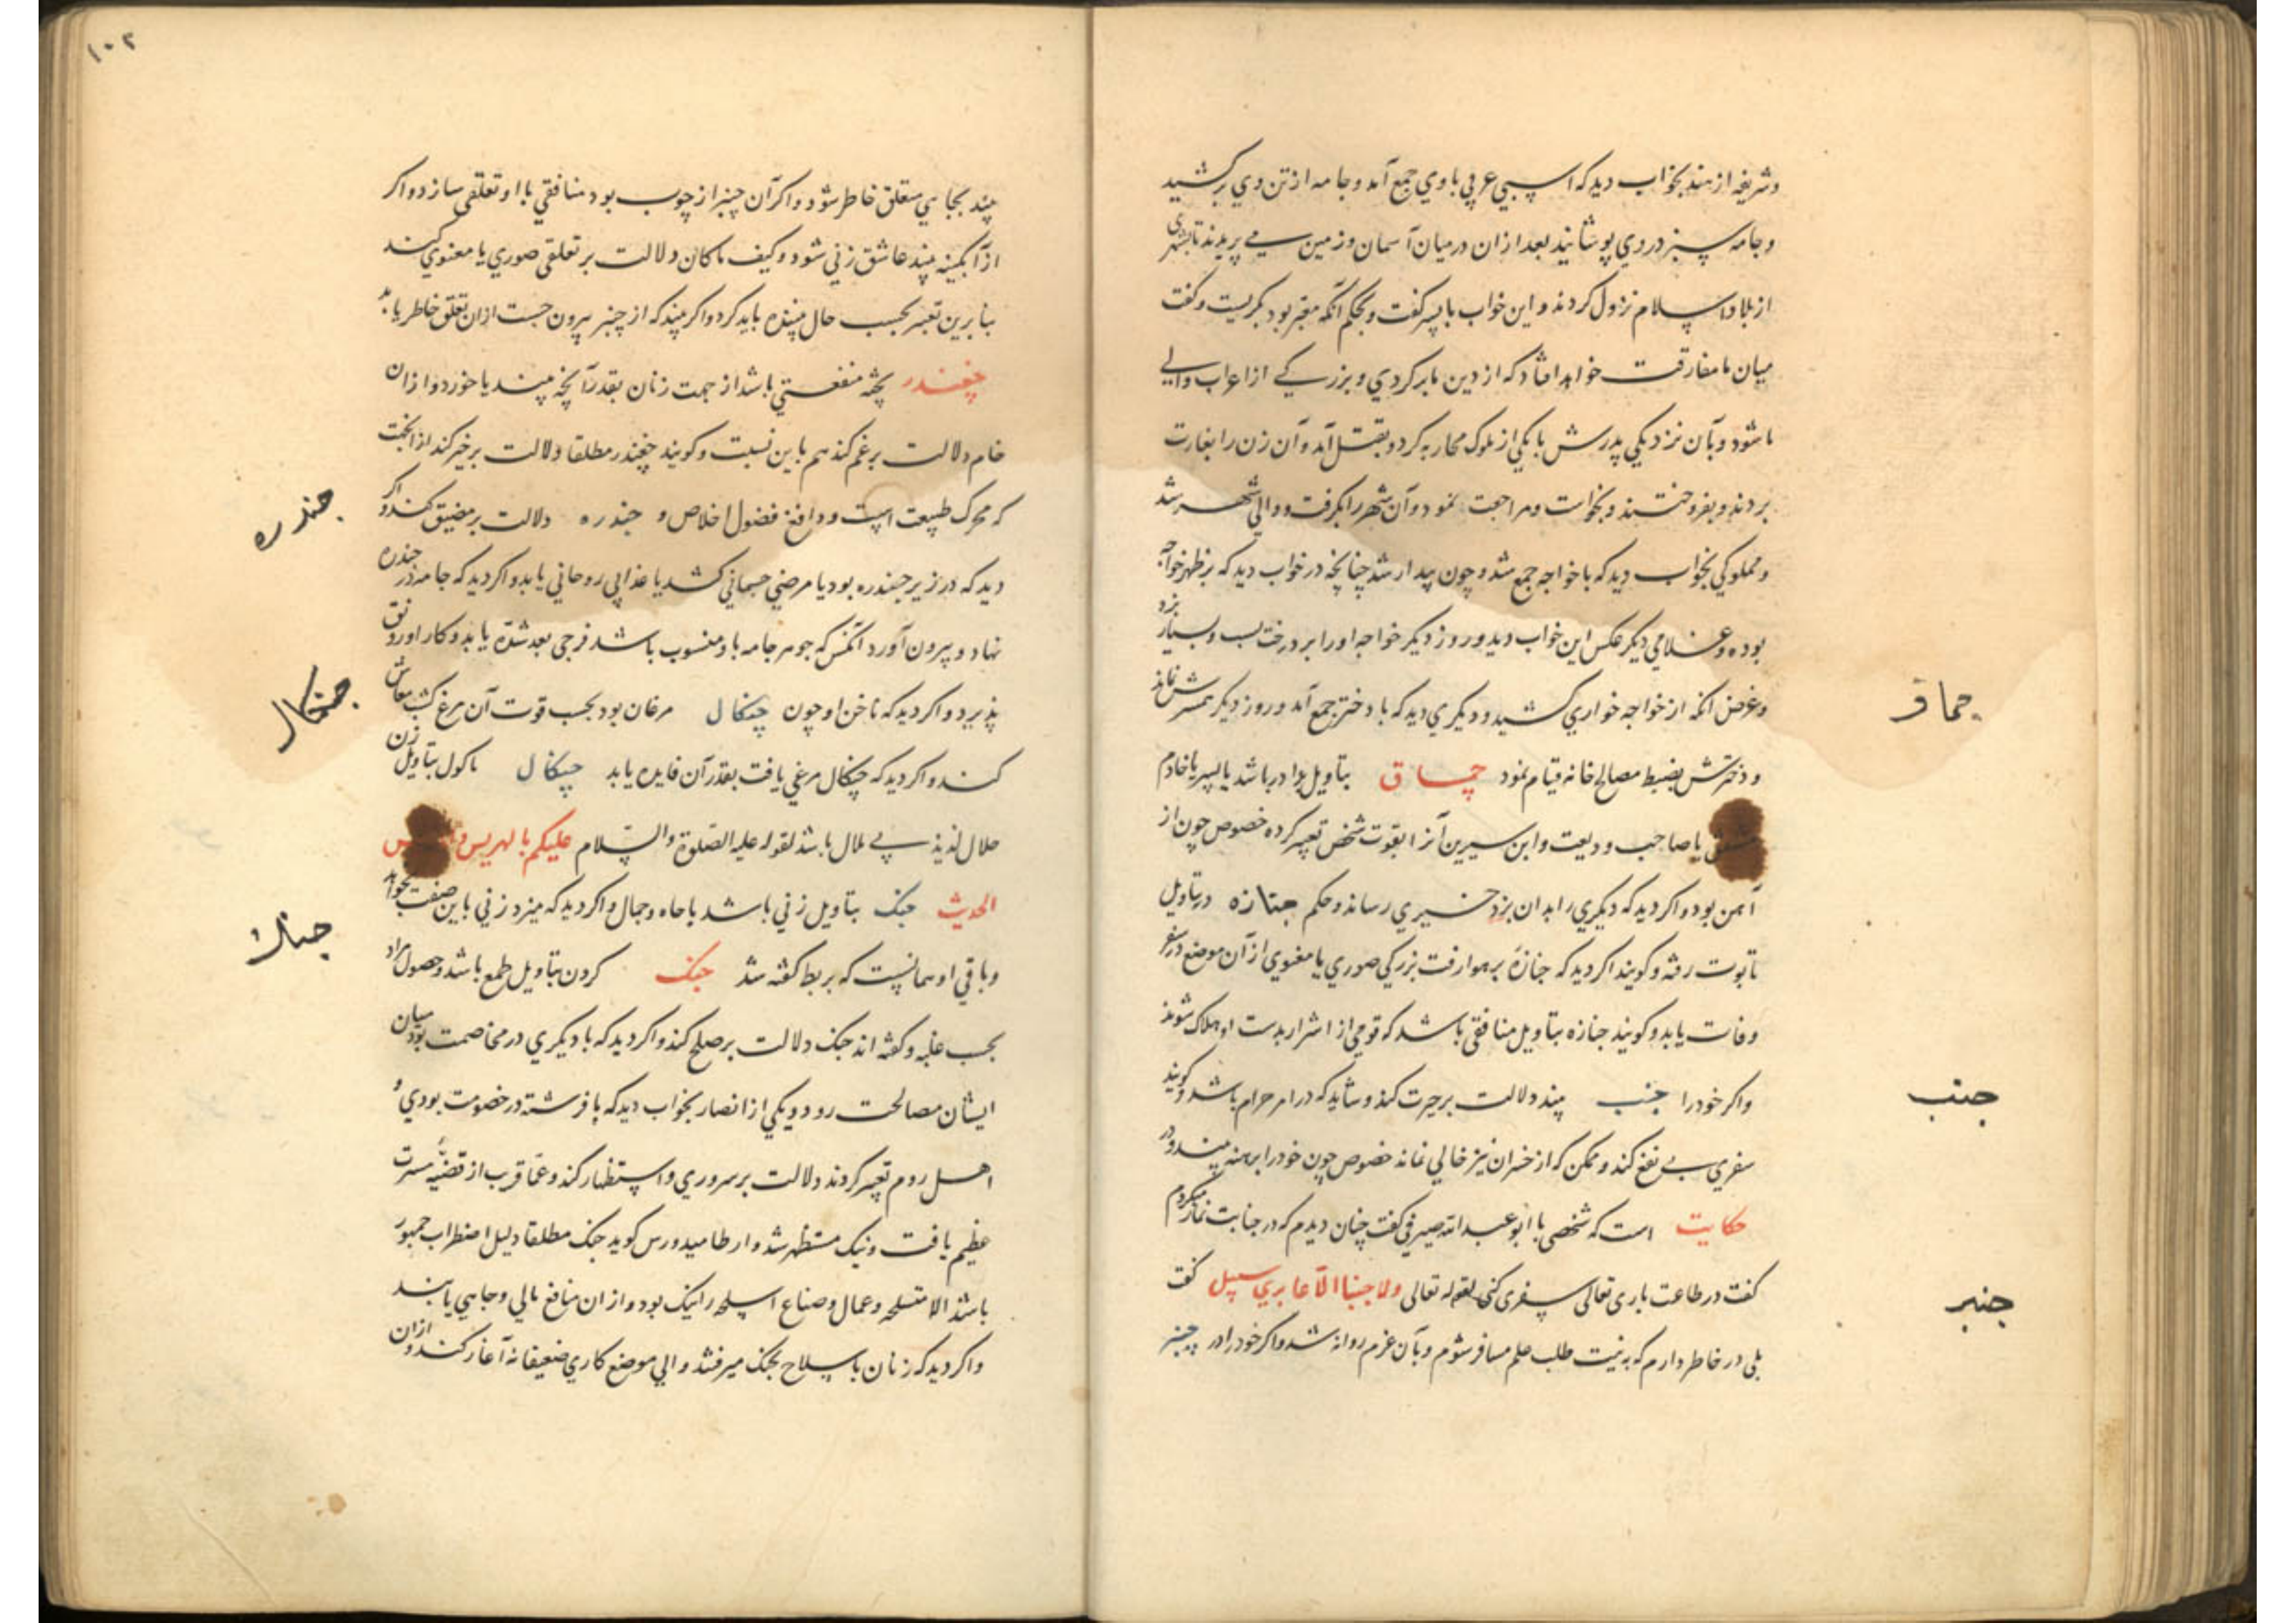 وشریفه از هند بخواب دید که اسپی عربی با وی جمع آمد و جامه از تن وی برکشید
و جامه سبز در وی پوشانید بعد ازان در میان آسمان و زمین می پریدند تا بشهری
از بلاد اسلام نزول کردند و این خواب با پسر گفت و بحکم آنکه معبر بود بگریست و گفت
میان ما مفارقت خواهد افتاد که از دین ما برگردی و بزرگی از اعراب والی
ما شود و بآن نزدیکی پدرش با یکی از ملوک محاربه کرد و بقتل آمد و آن زن را بغارت
بردند و بفروختند و بخواست و مراجعت نمود و آن شهر را بگرفت و والی شهر شد
و مملوکی بخواب دید که با خواجه جمع شد و چون بیدار شد چنانچه در خواب دید که بر ظهر خواجه
بوده و غلامی دیگر عکس این خواب دید و روز دیگر خواجه او را بر درخت بست و بسیار بزد
و غرض آنکه از خواجه خواری کشید و دیگری دید که با دختر جمع آمد و روز دیگر همسرش نماند
و دخترش بضبط مصالح خانه قیام نمود چماق بتاویل برادر باشد یا پسر یا خادم
مشفق یا صاحب ودیعت و ابن سیرین آنرا بقوت شخص تعبیر کرده خصوص چون از
آهن بود و اگر دید که دیگری را بدان بزد خیری رساند و حکم جنازه در تاویل
تابوت رفته و گویند اگر دید که جنازه بر هوا رفت بزرگی صوری یا معنوی از آن موضع در سفر
وفات یابد و گویند جنازه بتاویل منافقی باشد که قومی از اشرار بدست او هلاک شوند
و اگر خود را جنب بیند دلالت بر حیرت کند و شاید که در امر حرام باشد و گویند
سفری بی نفع کند و ممکن که از خسران نیز خالی نماند خصوص چون خود را برهنه بیند و در
حکایت است که شخصی با ابو عبد الله صیرفی گفت چنان دیدم که در جنابت نماز میکردم
گفت در طاعت باری تعالی سفری کنی لقوله تعالی ولا جنبا الا عابری سبیل گفت
بلی در خاطر دارم که به نیت طلب علم مسافر شوم و بآن عزم روانه شد و اگر خود را در چنبر
چماق
جنب
چنبر
۱۰۲
بیند بجایی متعلق خاطر شود و اگر آن چنبر از چوب بود منافقی با او تعلقی سازد و اگر
از آبگینه بیند عاشق زنی شود و کیف ما کان دلالت بر تعلقی صوری یا معنوی کند
بنابرین تعبیر بحسب حال بیننده باید کرد و اگر بیند که از چنبر بیرون جست ازان تعلق خاطر یابد
چغندر پخته منفعتی باشد از جهت زنان بقدر آنچه بیند یا خورد و ازان
خام دلالت بر غم کند هم باین نسبت و گویند چغندر مطلقا دلالت بر خیر کند از انجهت
که محرک طبیعت است و دافع فضول اخلاص و جندره دلالت بر مضیق کند و اگر
دید که در زیر جندره بود یا مرضی جسمانی کشد یا عذابی روحانی یابد و اگر دید که جامه در جندره
نهاد و بیرون آورد آنکس که جوهر جامه باو منسوب باشد فرجی بعد شدة یابد و کار او رونق
پذیرد و اگر دید که ناخن او چون چنگال مرغان بود بحسب قوت آن مرغ کسب معاش
کند و اگر دید که چنگال مرغی یافت بقدر آن فایده یابد چنگال ماکول بتاویل زن
حلال لذیذ بی ملال باشد لقوله علیه الصلوة والسلام علیکم بالهریس
الحدیث چنگ بتاویل زنی باشد با جاه و جمال و اگر دید که میزد زنی باین صفت بخواهد
و باقی او همانست که بربط گفته شد جنگ کردن بتاویل طمع باشد و حصول مراد
بحسب غلبه و گفته اند جنگ دلالت بر صلح کند و اگر دید که با دیگری در مخاصمت بود میان
ایشان مصالحت رود و یکی از انصار بخواب دید که با فرشته در خصومت بودی و
اهل روم تعبیر کردند دلالت بر سروری و استظهار کند و عما قریب از قضیه مسرت
عظیم یافت و نیک مستظهر شد و ارطامیدورس گوید جنگ مطلقا دلیل اضطراب جمهور
باشد الا متسلحه و عمال و صناع اسلحه را نیک بود و ازان منافع مالی و جاهی یابند
و اگر دید که زنان با سلاح بجنگ میرفتند والی موضع کاری ضعیفانه آغاز کند و ازان
جندره
چنگال
چنگ